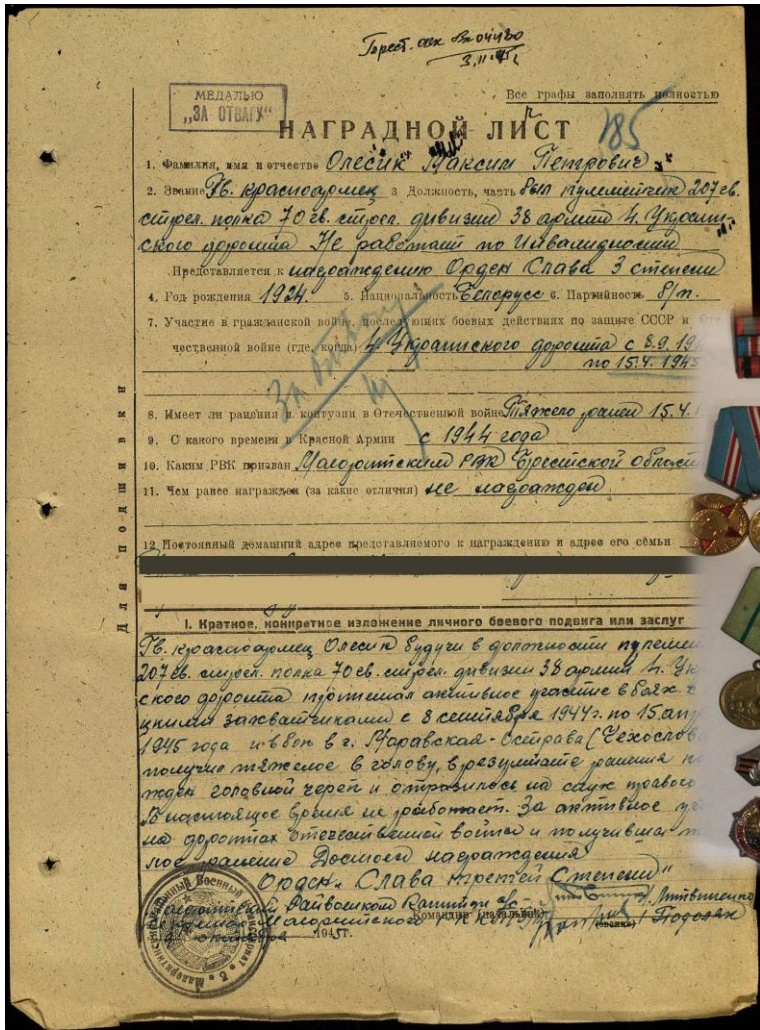 3.11.45г.
Все графы заполнять полностью
МЕДАЛЬЮ
„ЗА ОТВАГУ“
НАГРАДНОЙ ЛИСТ 185
1. Фамилия, имя и отчество Олесик Максим Петрович
2. Звание Гв. красноармеец 3 Должность, часть был пулеметчик 207 гв.
стрел. полка 70 гв. стрел. дивизии 38 армии 4. Украин-
ского фронта Не работает по Инвалидности
Представляется к награждению Орден Слава 3 степени
4. Год рождения 1924. 5. Национальность Белорусс 6. Партийность б/п.
7. Участие в гражданской войне, последующих боевых действиях по защите СССР и
чественной войне (где, когда) 4 Украинского фронта с 8.9.
по 15.4.1945
За отвагу
8. Имеет ли ранения и контузии в Отечественной войне Тяжело ранен 15.4.
9. С какого времени в Красной Армии с 1944 года
10. Каким РВК призван Малоритским РВК Брестской области
11. Чем ранее награжден (за какие отличия) не награжден
12 Постоянный домашний адрес представляемого к награждению и адрес его семьи
Для подшивки
I. Краткое, конкретное изложение личного боевого подвига или заслуг
Гв. красноармеец Олесик будучи в должности
207 гв. стрел. полка 70 гв. стрел. дивизии 38 армии 4.
ского фронта принимал активное участие в боях с
цкими захватчиками с 8 сентября 1944 г. по 15
1945 года и в бою в г. Маравская-Острава
получил тяжелое в голову, в результате ранения
жден головной череп и отразилось на слух
В настоящее время не работает. За активное
на фронтах отечественной войны и получивший
лое ранение Достоен награждения
Орден „Слава третей Степени“
Малоритский Райвоенком Капитан Литвиненко
Малоритского Командир (начальник) (звание) Подоляк
октября 1945 г.